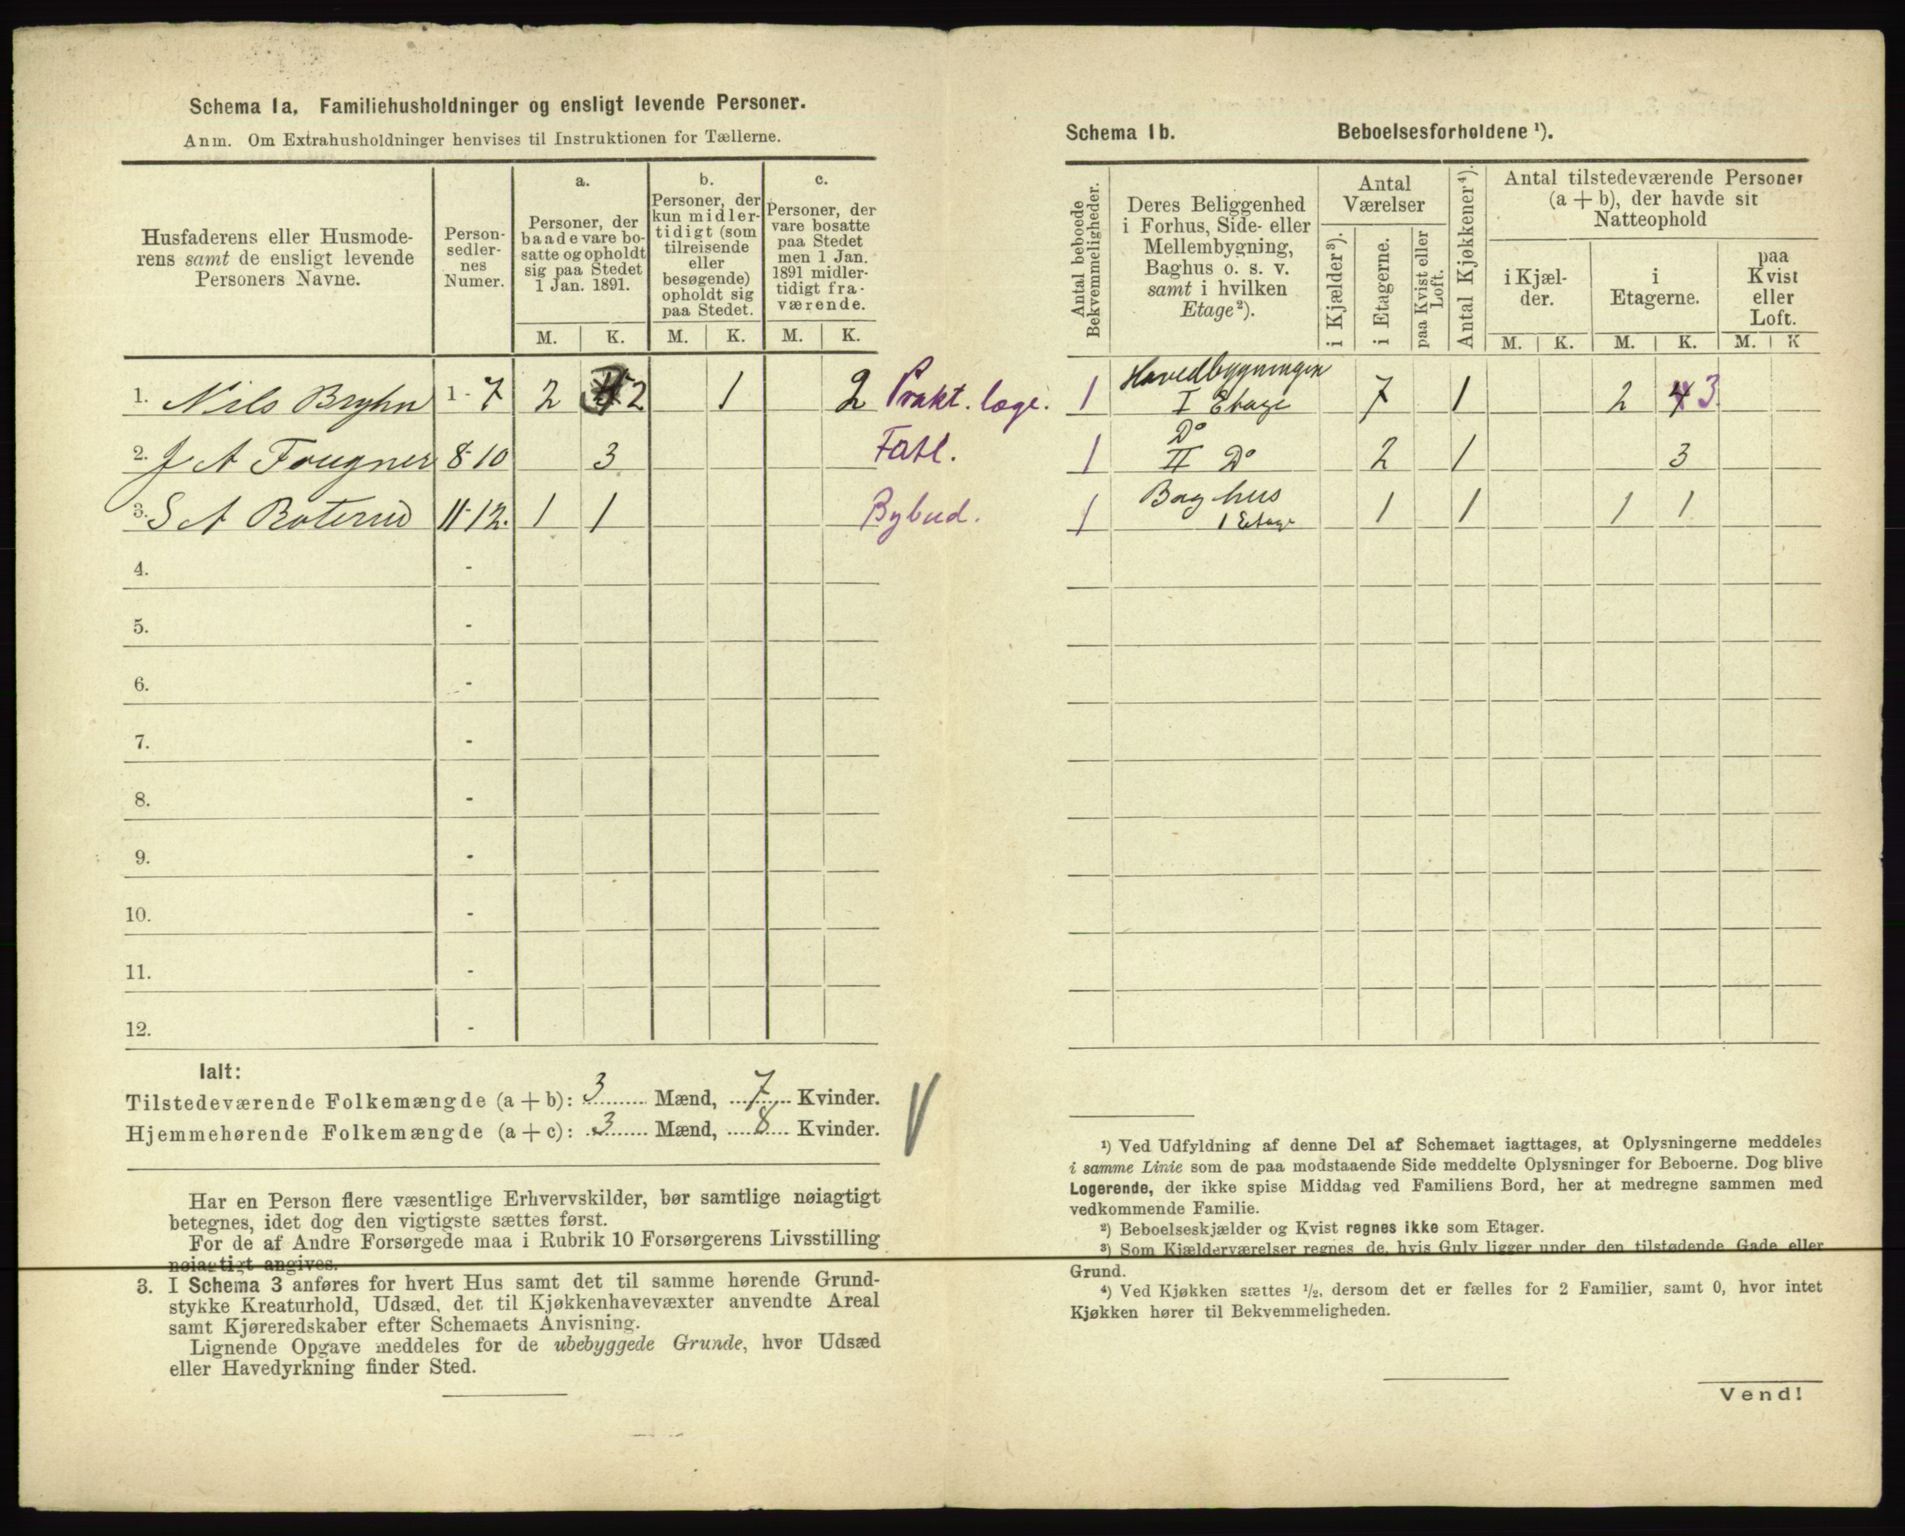 Schema 1a. Familiehusholdninger og ensligt levende Personer.
Anm. Om Extrahusholdninger henvises til Instruktionen for Tællerne.
Husfaderens eller Husmode-
rens samt de ensligt levende
Personers Navne.
Person-
sedler-
nes
Numer.
a.
Personer, der
baade vare bo-
satte og opholdt
sig paa Stedet
1 Jan. 1891.
b.
Personer, der
kun midler-
tidigt (som
tilreisende
eller
besøgende)
opholdt sig
paa Stedet.
c.
Personer, der
vare bosatte
paa Stedet
men 1 Jan.
1891 midler-
tidigt fra-
værende.
M. K. M. K. M. K.
1. Nils Bryhn 1-7 2 2 1 2 Prakt. læge.
2. J A Fougner 8-10 3 Fatt.
3. S A Roterud 11-12. 1 1 Bybud.
4. -
5. -
6. -
7. -
8. -
9. -
10. -
11. -
12. -
Ialt:
Tilstedeværende Folkemængde (a + b): 3 Mænd, 7 Kvinder.
Hjemmehørende Folkemængde (a + c): 3 Mænd, 8 Kvinder.
Har en Person flere væsentlige Erhvervskilder, bør samtlige nøiagtigt
betegnes, idet dog den vigtigste sættes først.
For de af Andre Forsørgede maa i Rubrik 10 Forsørgerens Livsstilling
nøiagtigt angives.
3. I Schema 3 anføres for hvert Hus samt det til samme hørende Grund-
stykke Kreaturhold, Udsæd, det til Kjøkkenhavevæxter anvendte Areal
samt Kjøreredskaber efter Schemaets Anvisning.
Lignende Opgave meddeles for de ubebyggede Grunde, hvor Udsæd
eller Havedyrkning finder Sted.
Schema 1b. Beboelsesforholdene ¹).
Antal beboede
Bekvemmeligheder.
Deres Beliggenhed
i Forhus, Side- eller
Mellembygning,
Baghus o. s. v.
samt i hvilken
Etage ²).
Antal
Værelser
i Kjælder ³).
i Etagerne.
paa Kvist eller
Loft.
Antal Kjøkkener ⁴).
Antal tilstedeværende Personer
(a + b), der havde sit
Natteophold
i Kjæl-
der.
i
Etagerne.
paa
Kvist
eller
Loft.
M. K. M. K. M. K
1 Hovedbygningen
I Etage 7 1 2 4 3
1 Do
II Do 2 1 3
1 Baghus
1 Etage 1 1 1 1
¹) Ved Udfyldning af denne Del af Schemaet iagttages, at Oplysningerne meddeles
i samme Linie som de paa modstaaende Side meddelte Oplysninger for Beboerne. Dog blive
Logerende, der ikke spise Middag ved Familiens Bord, her at medregne sammen med
vedkommende Familie.
²) Beboelseskjælder og Kvist regnes ikke som Etager.
³) Som Kjælderværelser regnes de, hvis Gulv ligger under den tilstødende Gade eller
Grund.
⁴) Ved Kjøkken sættes ½, dersom det er fælles for 2 Familier, samt 0, hvor intet
Kjøkken hører til Bekvemmeligheden.
Vend!